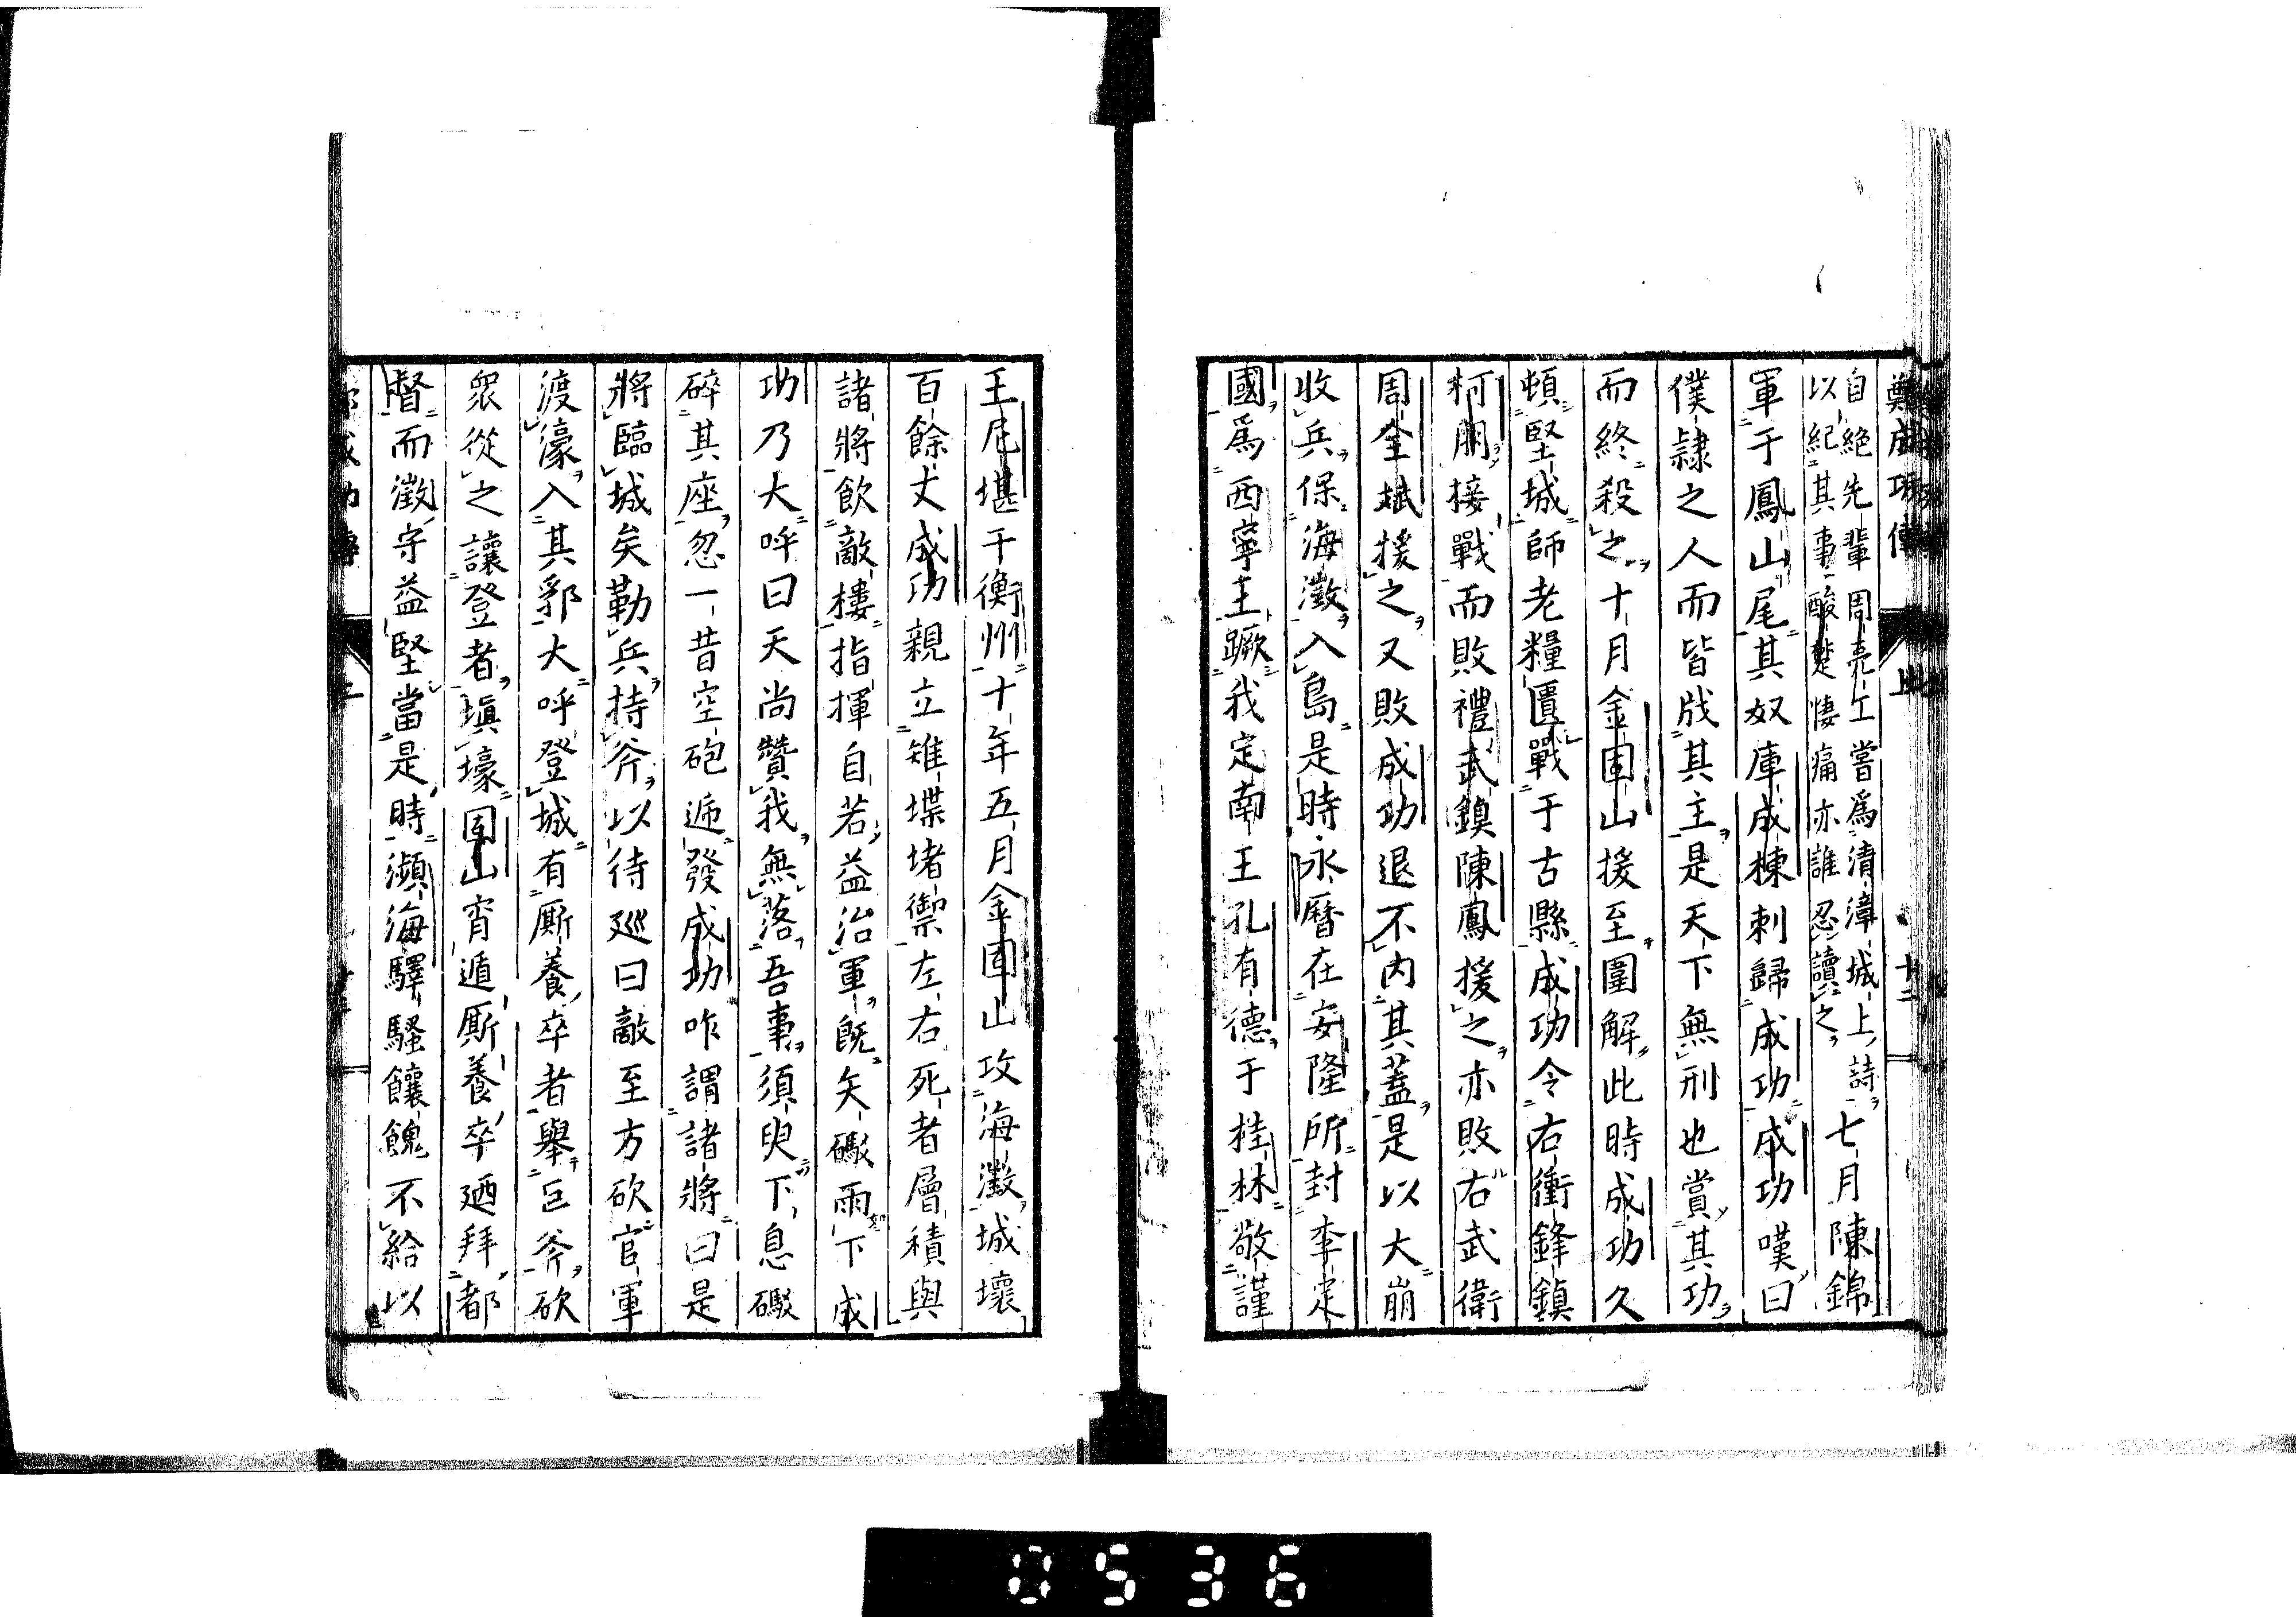 鄭成功傳 上 十二
自絶先輩周亮工嘗爲清漳城上詩
以紀其事酸楚悽痛亦誰忍讀之
七月陳錦
軍于鳳山尾其奴庫成棟刺歸成功成功嘆曰
僕隷之人而皆戕其主是天下無刑也賞其功
而終殺之十月金固山援至圍解此時成功久
頓堅城師老糧匱戰于古縣成功令右衝鋒鎮
柯朋接戰而敗禮武鎮陳鳳援之亦敗右武衛
周全斌援之又敗成功退不内其蓋是以大崩
收兵保海澂入島是時永曆在安隆所封李定
國爲西寧王蹶我定南王孔有德于桂林敬謹
王尼堪于衡州十年五月金固山攻海澂城壞
百餘丈成功親立雉堞堵禦左右死者層積與
諸將飲敵樓指揮自若益治軍既矢礮雨下成
功乃大呼曰天尚贊我無落吾事須臾下息礮
碎其座忽一昔空砲遞發成功咋謂諸將曰是
將臨城矣勒兵持斧以待廵曰敵至方砍官軍
渡濠入其郛大呼登城有厮養卒者舉巨斧砍
衆從之讓登者塡壕固山宵遁厮養卒廼拜都
督而澂守益堅當是時瀕海驛騷饟餽不給以